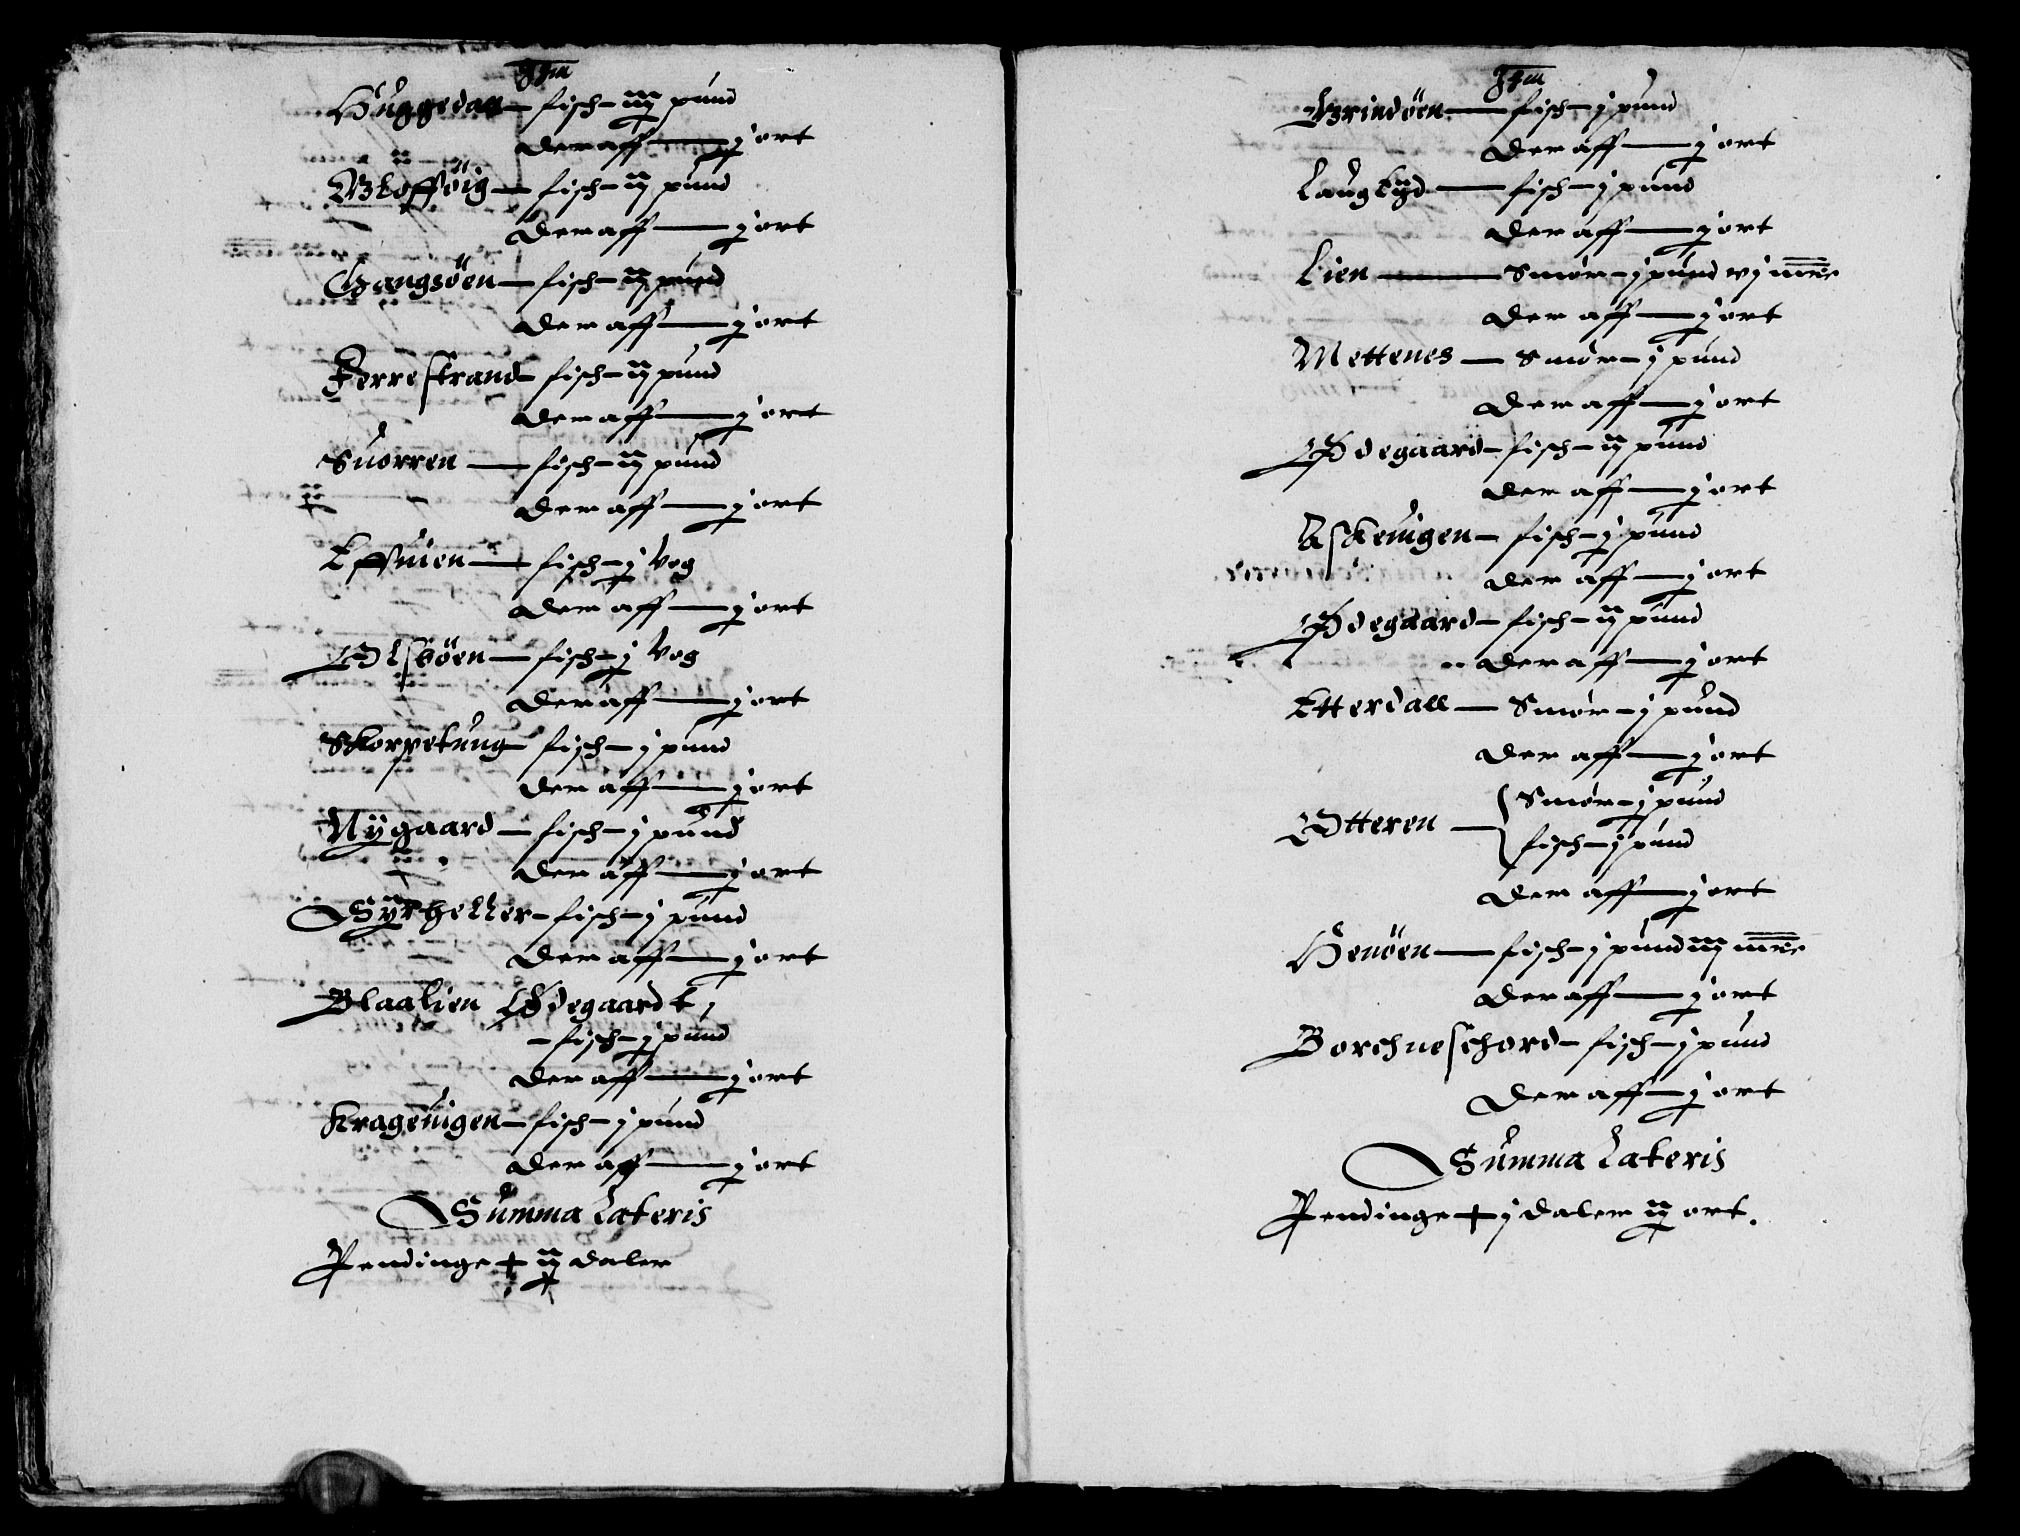 Jtm
Huggedall — fisch — iij pund
der aff — j ort
Blofföig — fisch — ij pund
der aff — j ort
Gangsöen — fisch — ij pund
der aff — j ort
Ferrestrand — fisch — ij pund
der aff — j ort
Snorren — fisch — ij pund
der aff — j ort
Effuien — fisch — j Vog
der aff — j ort
Olsböen — fisch — j Vog
der aff — j ort
Skorpetung — fisch — j pund
der aff — j ort
Nÿgaard — fisch — j pund
der aff — j ort
Sÿrheller — fisch — j pund
der aff — j ort
Blaalien Ødegaardt,
— fisch — j pund
der aff — j ort
Krageuigen — fisch — j pund
der aff — j ort
Summa Lateris
Pendinge + ij daler
Jtm
Brindöen — fisch — j pund
der aff — j ort
Langlÿd — fisch — j pund
der aff — j ort
Lien — Smör — j pund vj mrc
der aff — j ort
Mettenes — Smör — j pund
der aff — j ort
Ødegaard — fisch — ij pund
der aff — j ort
Askeuigen — fisch — j pund
der aff — j ort
Ødegaard — fisch — ij pund
der aff — j ort
Etterdall — Smör — j pund
der aff — j ort
Otteren — Smör — j pund
fisch — j pund
der aff — j ort
Henöen — fisch — j pund iij mrc
der aff — j ort
Borchneschord — fisch — j pund
der aff — j ort
Summa Lateris
Pendinge + j daler ij ort.